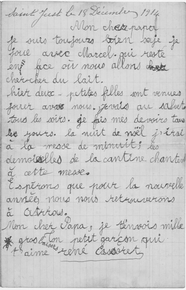 Saint Just le 18 Décembre 1914
Mon cher papa
je suis toujours bien sage je
joue avec Marcel qui reste
en face où nous allons
chercher du lait.
hier deux petites filles sont venues
jouer avec nous. je vais au salut
tous les soirs. je fais mes devoirs tous
les jours. la nuit de noël j'irai
à la messe de minuit. les
demoiselles de la cantine chantent
à cette messe.
Espérons que pour la nouvelle
année nous nous retrouverons
à
Mon cher Papa, je t'envois mille
gros ton petit garçon qui
t'aime rené